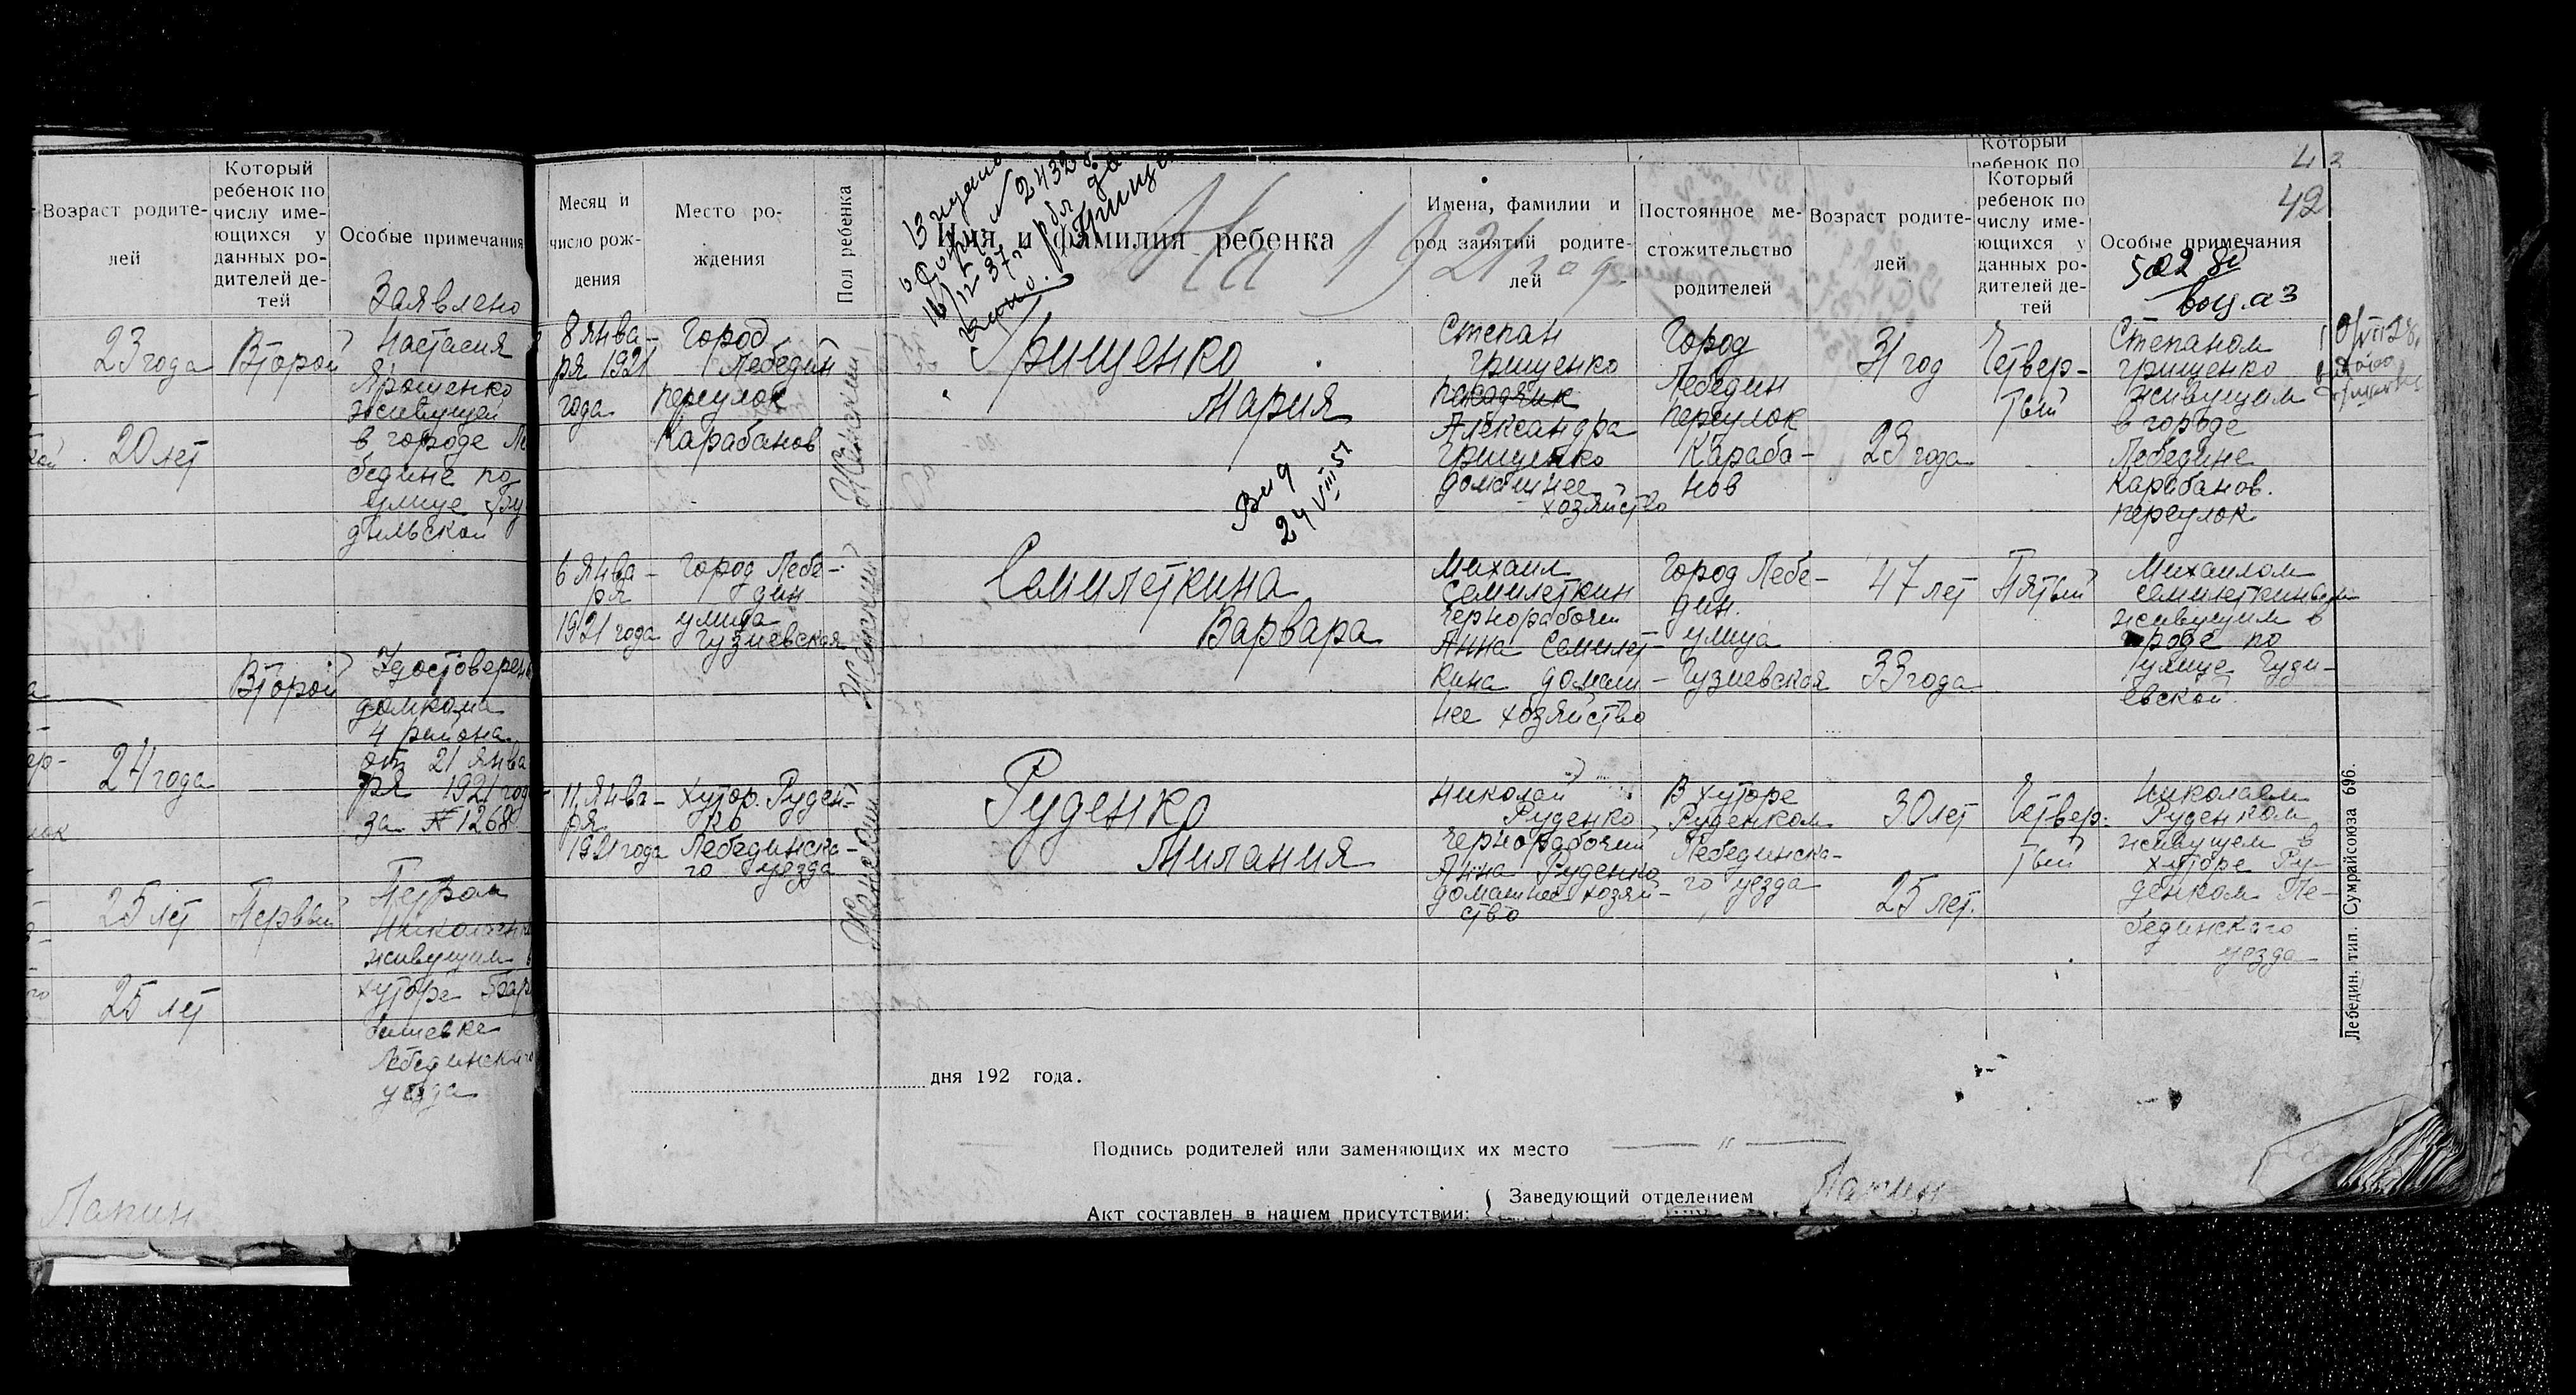 Возраст родите-
лей
Который
ребенок по
числу име-
ющихся у
данных ро-
дителей де-
тей
Особые примечания
Заявлено
23 года
Второй
Настасия
Ярошенко
живущей
в городе Ле
20 лет
бедине по
улице
дильской
Второй
Удостоверен
домкома
4 района
от 21 янва
24 года
ря 1921 год
за № 1268
25 лет
Первый
Петром
Николаенк
живущим в
25 лет
хуторе Бар
бишевке
Лебединскаго
уезда
Лапин
Месяц и
число рож-
дения
Место ро-
ждения
Пол ребенка
Имя и фамилия ребенка
На 1921 год
№ 24328
16/12 37 г.
Имена, фамилии и
род занятий родите-
лей
Постоянное ме-
стожительство
родителей
Возраст родите-
лей
Который
ребенок по
Который
ребенок по
числу име-
ющихся у
данных ро-
дителей де-
тей
43
42
Особые примечания
8 янва-
ря 1921
года
Город
Лебедин
переулок
Карабанов
Женский
Грищенко
Мария
24 VIII 51
Степан
Грищенко
Александра
Грищенко
домашнее
хозяйство
Город
Лебедин
переулок
Караба-
нов
31 год
23 года
Четвер-
тый
Степаном
Грищенко
живущим
в городе
Лебедине
Карабанов.
переулок
6 янва-
ря
1921 года
Город Лебе-
дин
улица
Гузиевская
Женский
Семилеткина
Варвара
Михаил
Семилеткин
чернорабочий
Анна Семилет-
кина домаш-
нее хозяйство
Город Лебе-
дин.
улица
Гузиевская
47 лет
33 года
Пятый
Михаилом
Семилеткиным
живущим в
городе по
улице Гузи-
евской
11 янва-
ря
1921 года
Хутор. Руден-
ко
Лебединска-
го уезда
Женский
Руденко
Милания
Николай
Руденко
чернорабочий
Анна Руденко
домашнее хозяй-
ство
В хуторе
Руденком
Лебединска-
го уезда
30 лет
25 лет.
Четвер-
тый
Николаем
Руденком
живущем в
хуторе Ру-
денком Ле-
бединскаго
уезда
Лебедин. тип. Сумрайсоюза 696.
дня 192 года.
Подпись родителей или заменяющих их место — " —
Акт составлен в нашем присутствии: { Заведующий отделением Лапин